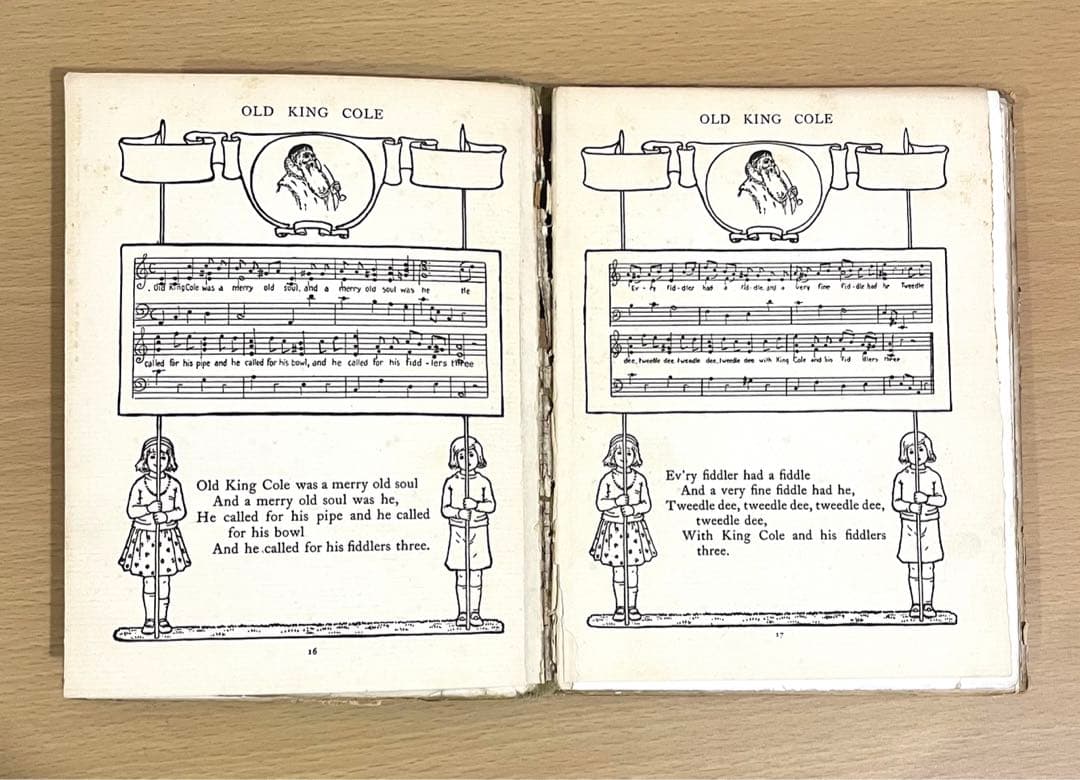 OLD KING COLE
Old King Cole was a merry old soul, and a merry old soul was he He
called for his pipe and he called for his bowl, and he called for his fidd-lers three
Old King Cole was a merry old soul
And a merry old soul was he,
He called for his pipe and he called
for his bowl
And he called for his fiddlers three.
16
OLD KING COLE
Ev-ry fid-dler had a fid-dle and a very fine fid-dle had he Tweedle
dee, tweedle dee tweedle dee, tweedle dee with King Cole and his fid dlers three
Ev'ry fiddler had a fiddle
And a very fine fiddle had he,
Tweedle dee, tweedle dee, tweedle dee,
tweedle dee,
With King Cole and his fiddlers
three.
17